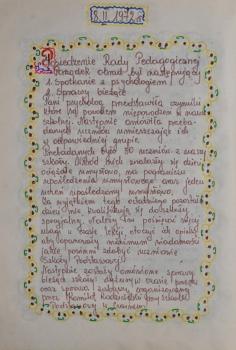 8.II.1972 r.
Posiedzenie Rady Pedagogicznej
Porządek obrad był następujący
1. Spotkanie z psychologiem
2. Sprawy bieżące
Pani psycholog przedstawiła czynniki
które są powodem niepowodzeń w nauce
szkolnej. Następnie omówiła przeba-
danych uczniów umieszczając ich
w odpowiedniej grupie.
Przebadanych było 30 uczniów z naszej
szkoły. Wśród nich znalazły się dzieci
ociężałe umysłowo, na pograniczu
upośledzenia umysłowego oraz jeden
uczeń upośledzony umysłowo.
Za wyjątkiem tego ostatniego pozostałe
dzieci nie kwalifikują się do szkoły
specjalnej, należy im poświęcić więcej
uwagi w czasie lekcji, otoczyć ich opieką
aby opanowały minimum wiadomości
jakie powinien zdobyć uczeń
Szkoły Podstawowej.
Następnie zostały omówione sprawy
bieżące szkoły
oraz sprawa zabawy organizowanej
przez Komitet Rodzicielski przy Szkole
Podstawowej w